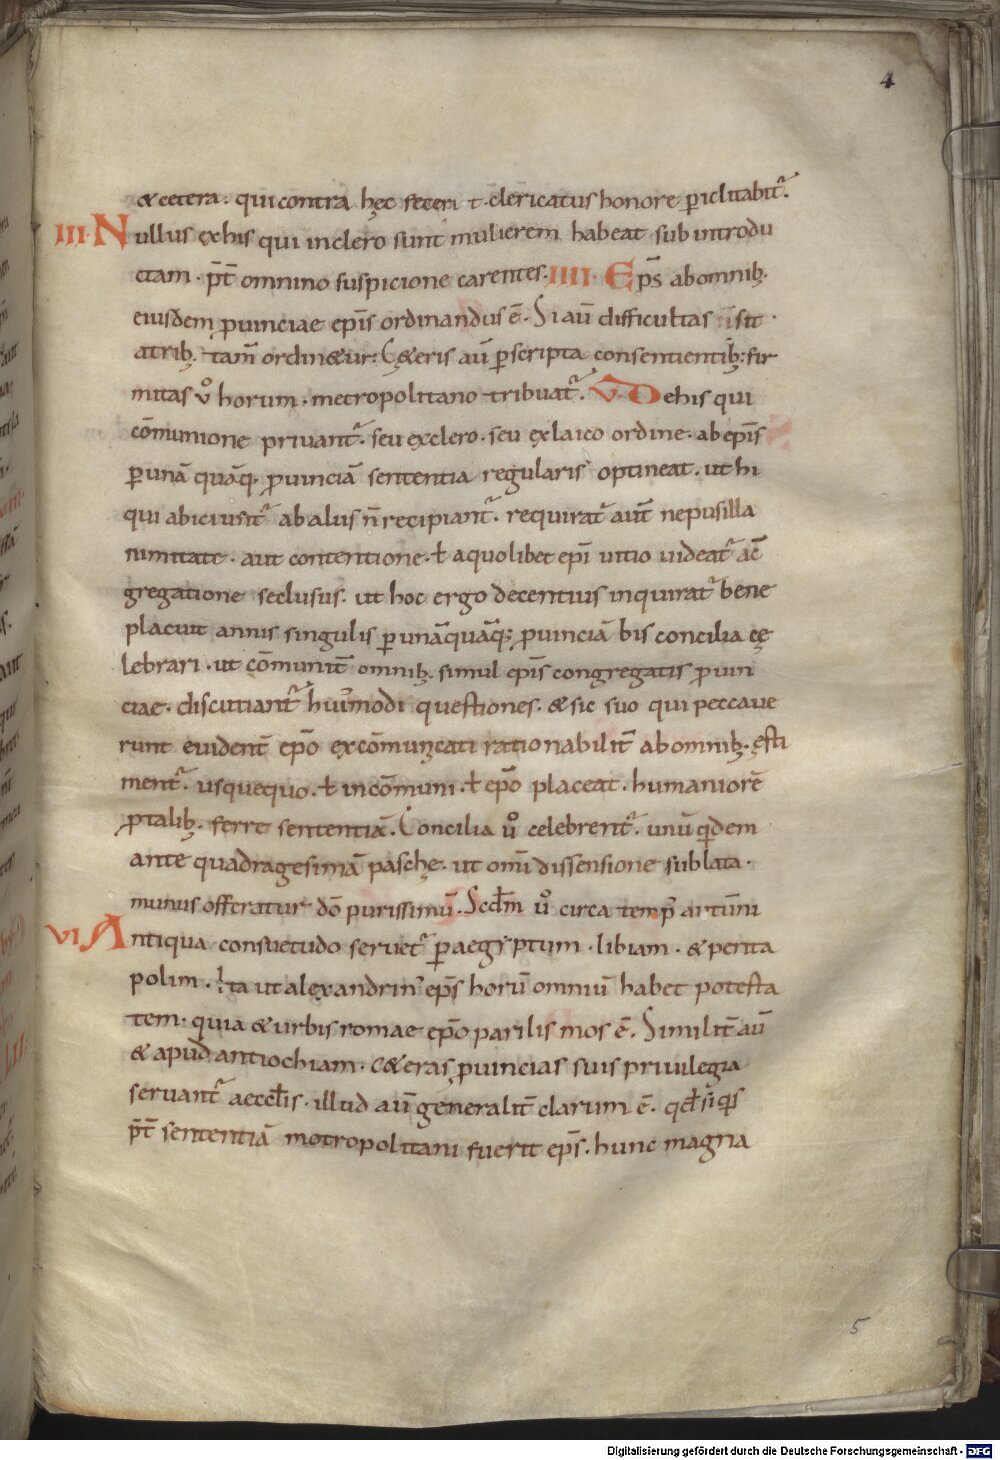 4
& cetera. qui contra hęc fecerit clericatus honore p̄iclitabit᷒.
III. Nullus ex his qui in clero sunt mulierem habeat subintrodu
ctam. p̄t̄ omnino suspicione carentes. IIII. Ep̄s ab omnib;
eiusdem p̱uinciae ep̄is ordinandus ē. Si aū difficultas n̄ sit.
a trib; tam̄ ordin&ur. C&eris aū p̱ scripta consentientib; fir
mitas v̊ horum. metropolitano tribuat᷒. V. De his qui
cōmunione privant᷒. seu ex clero. seu ex laico ordine. ab ep̄is
p̱ unā quāq; p̱uinciā sententia regularis optineat. ut hi
qui abiciunt᷒ ab aliis n̄ recipiant᷒. requirat᷒ aut̄ ne pusilla
nimitate. aut contentione. ł a quolibet ep̄i uitio uideat᷒ a c̄
gregatione seclusus. ut hoc ergo decentius inquirat᷒ bene
placuit annis singulis p̱ unāquāq; p̱uinciā bis concilia cę
lebrari. ut cōmunit̄ omnib; simul ep̄is congregatis p̱uin
ciae. discutiant᷒ hui᷒modi questiones. & sic suo qui peccaue
runt euident̄ ep̄o excōmunicati rationabilit̄ ab omnib; ęsti
ment᷒. usquequo. ł in cōmuni. ł ep̄o placeat. humaniorē
p̱ talib; ferre sententiā. Concilia ů celebrent᷒. unū q̇dem
ante quadragesimā paschę. ut om̄i dissensione sublata.
munus offeratur dō purissimū. Scd̄m ů circa temp̄ autūni
VI Antiqua consuetudo seruet᷒ p̱ aegyptum. libiam. & penta
polim. Ita ut alexandrin᷒ ep̄s horū omniū habet potesta
tem. quia & urbis romae ep̄o parilis mos ē. Similit̄ aū
& apud antiochiam. c&eras p̱uincias suis priuilegia
seruant᷒ aeccl̄is. illud aū generalit̄ clarum ē. qd̄ si q̇s
p̄t̄ sententiā motropolitani fuerit ep̄s. hunc magna
5
Digitalisierung gefördert durch die Deutsche Forschungsgemeinschaft - DFG